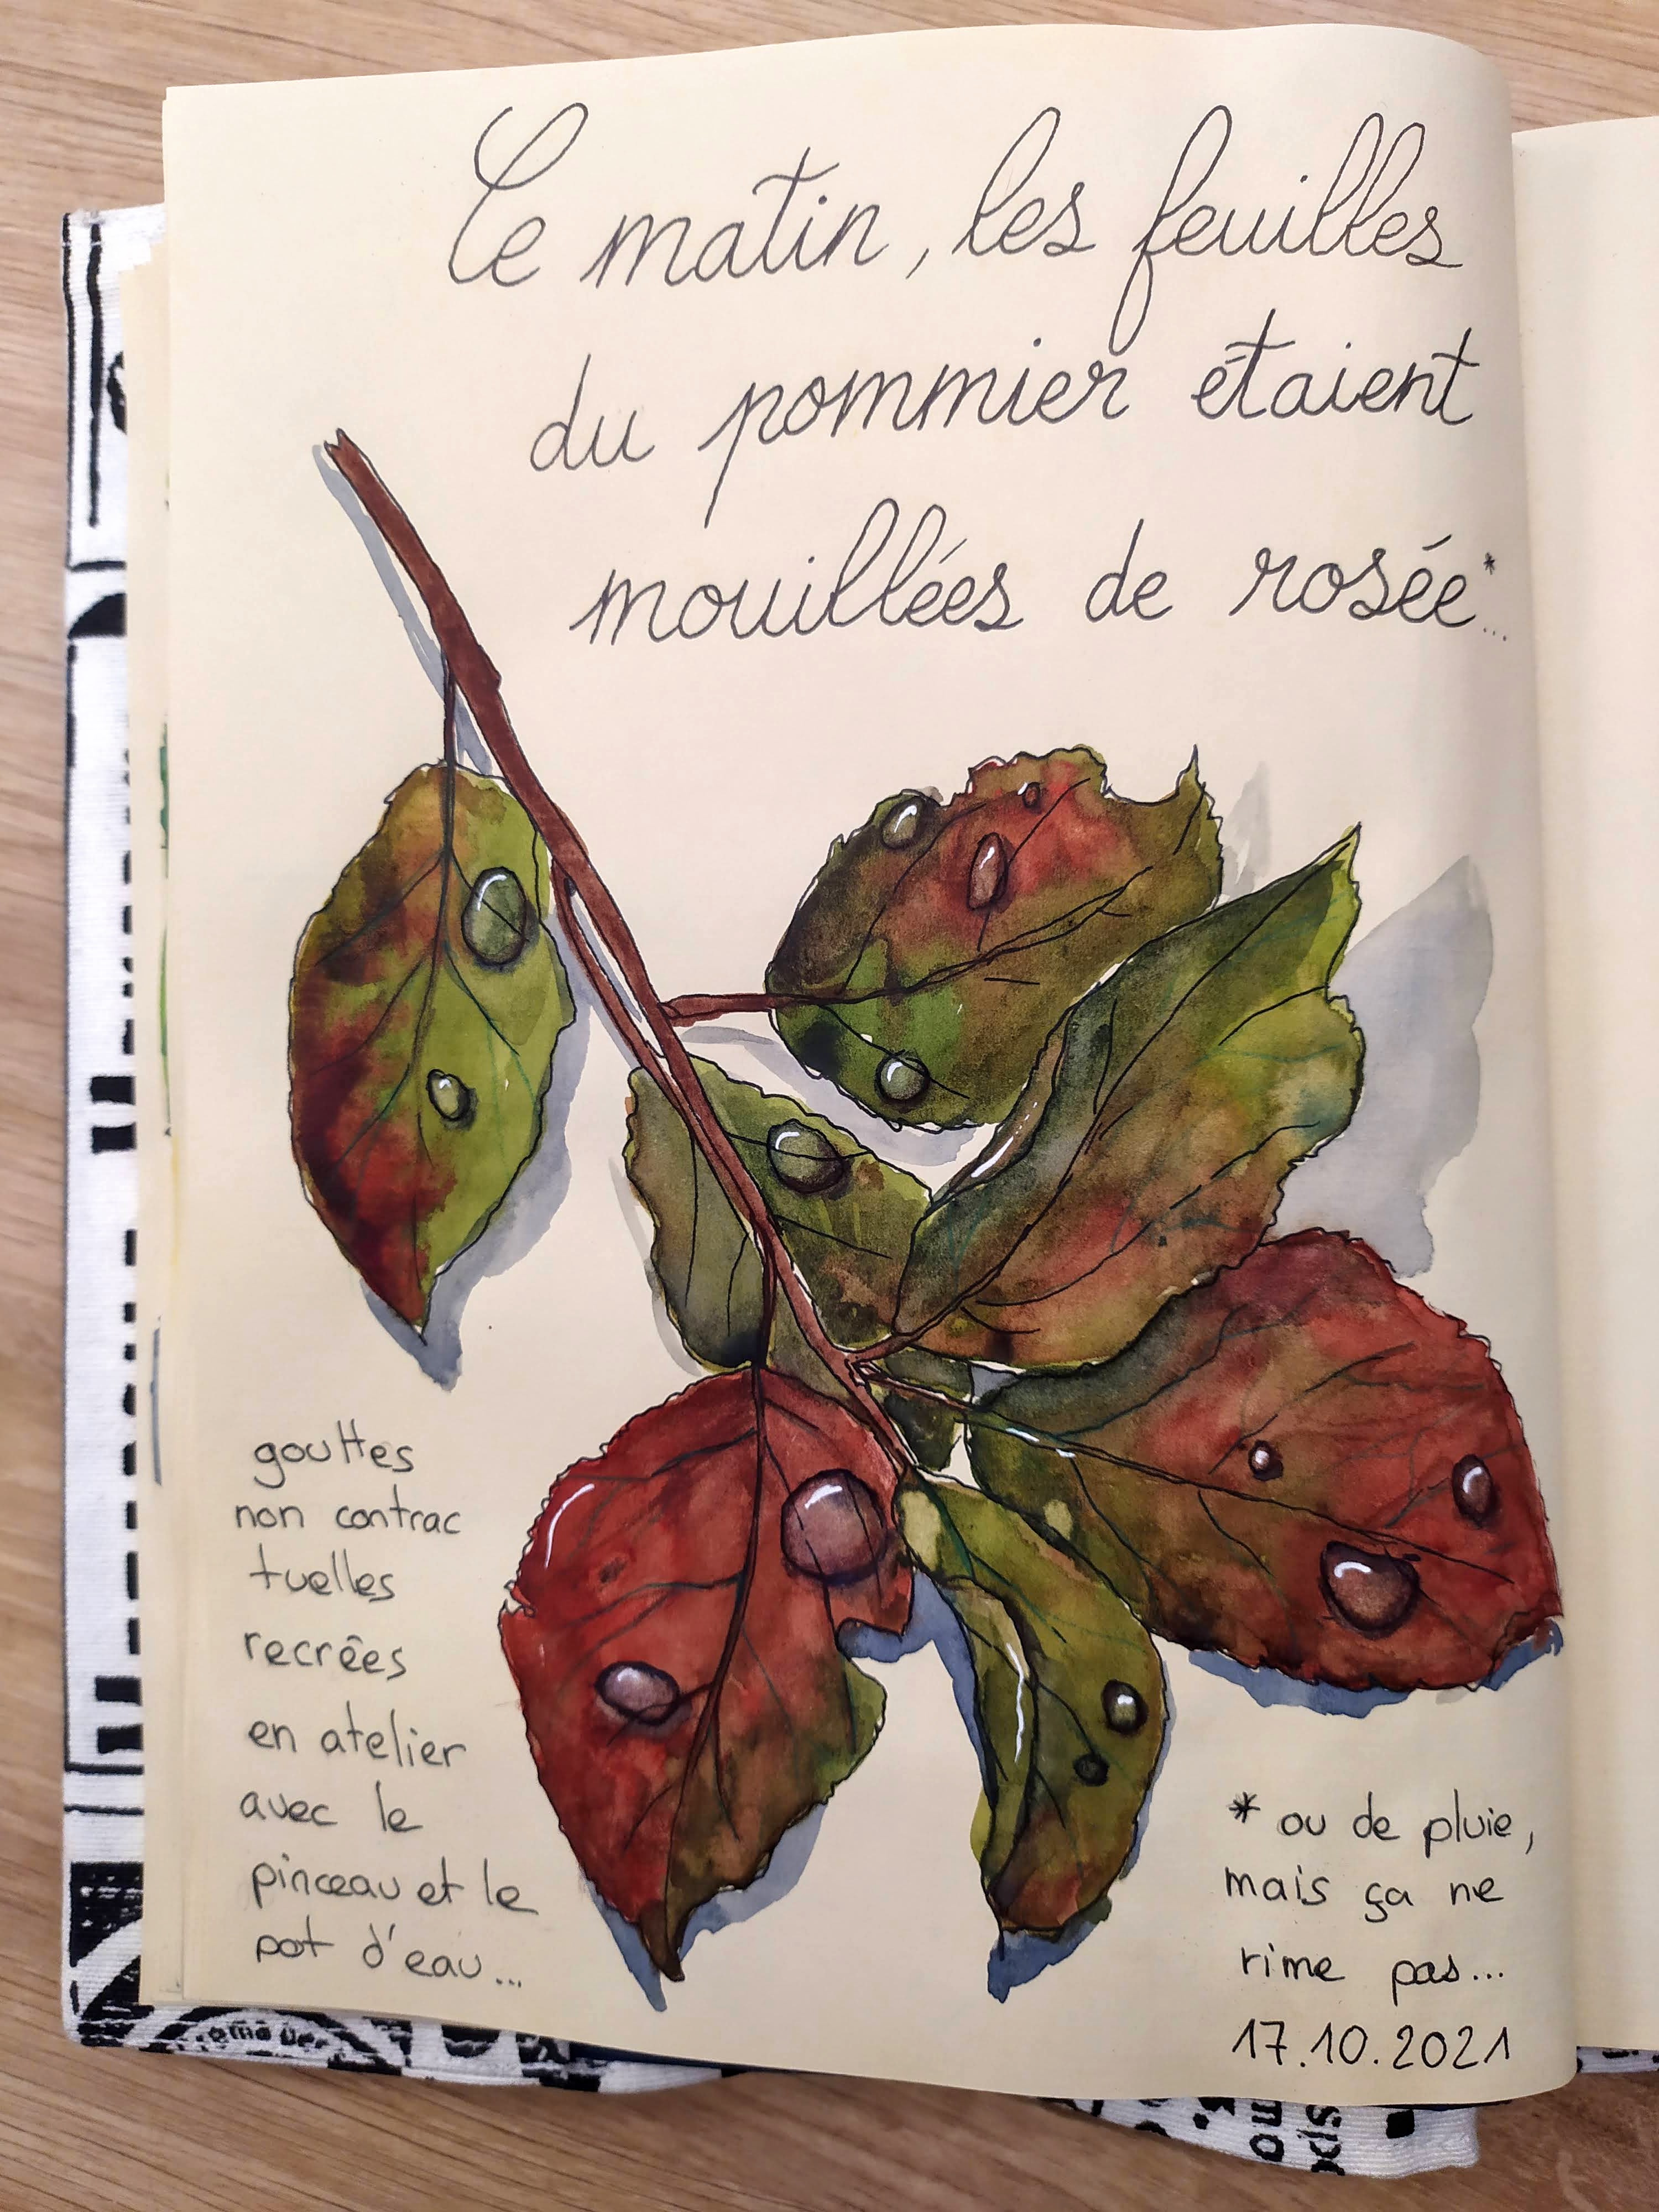 Ce matin, les feuilles
du pommier étaient
mouillées de rosée*...
gouttes
non contrac
tuelles
recrées
en atelier
avec le
pinceau et le
pot d'eau...
* ou de pluie,
mais ça ne
rime pas...
17.10.2021